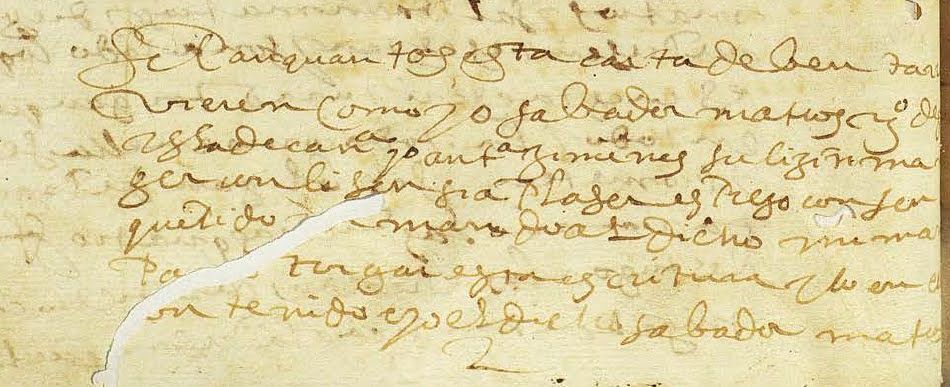 Sepan quantos esta carta de ben ta
vieren como yo sabador matos vzo de
ysla de cana yo anta ximenes su lizitima mu
ger con lisensia plaser espreso consen
que pido mando al dicho mi ma
Pa torgar esta escritura y lo en e
on tenido e yo el dicho sabador mato